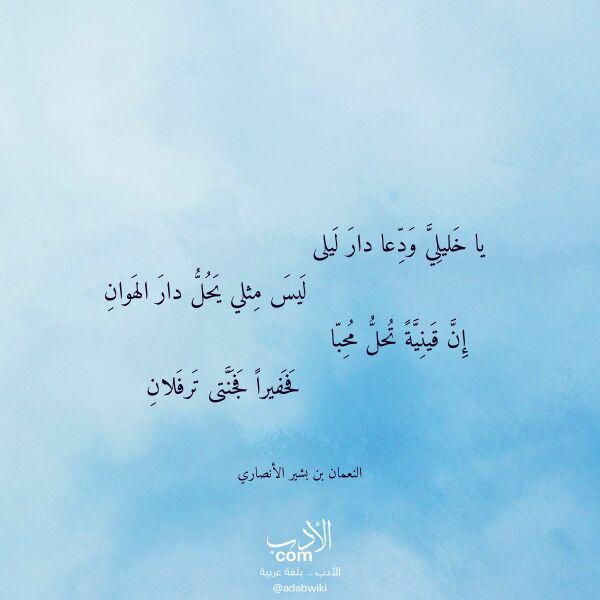 يا خَليلِيَّ وَدِّعا دارَ لَيلى
لَيسَ مِثلي يَحُلُّ دارَ الهَوانِ
إِنَّ قَينِيَّةً تُحلُّ مُحِبّا
فَحَفيراً فَجَنَّتى تَرفَلانِ
النعمان بن بشير الأنصاري
الأدب
com
الأدب .. بلغة عربية
@adabwiki